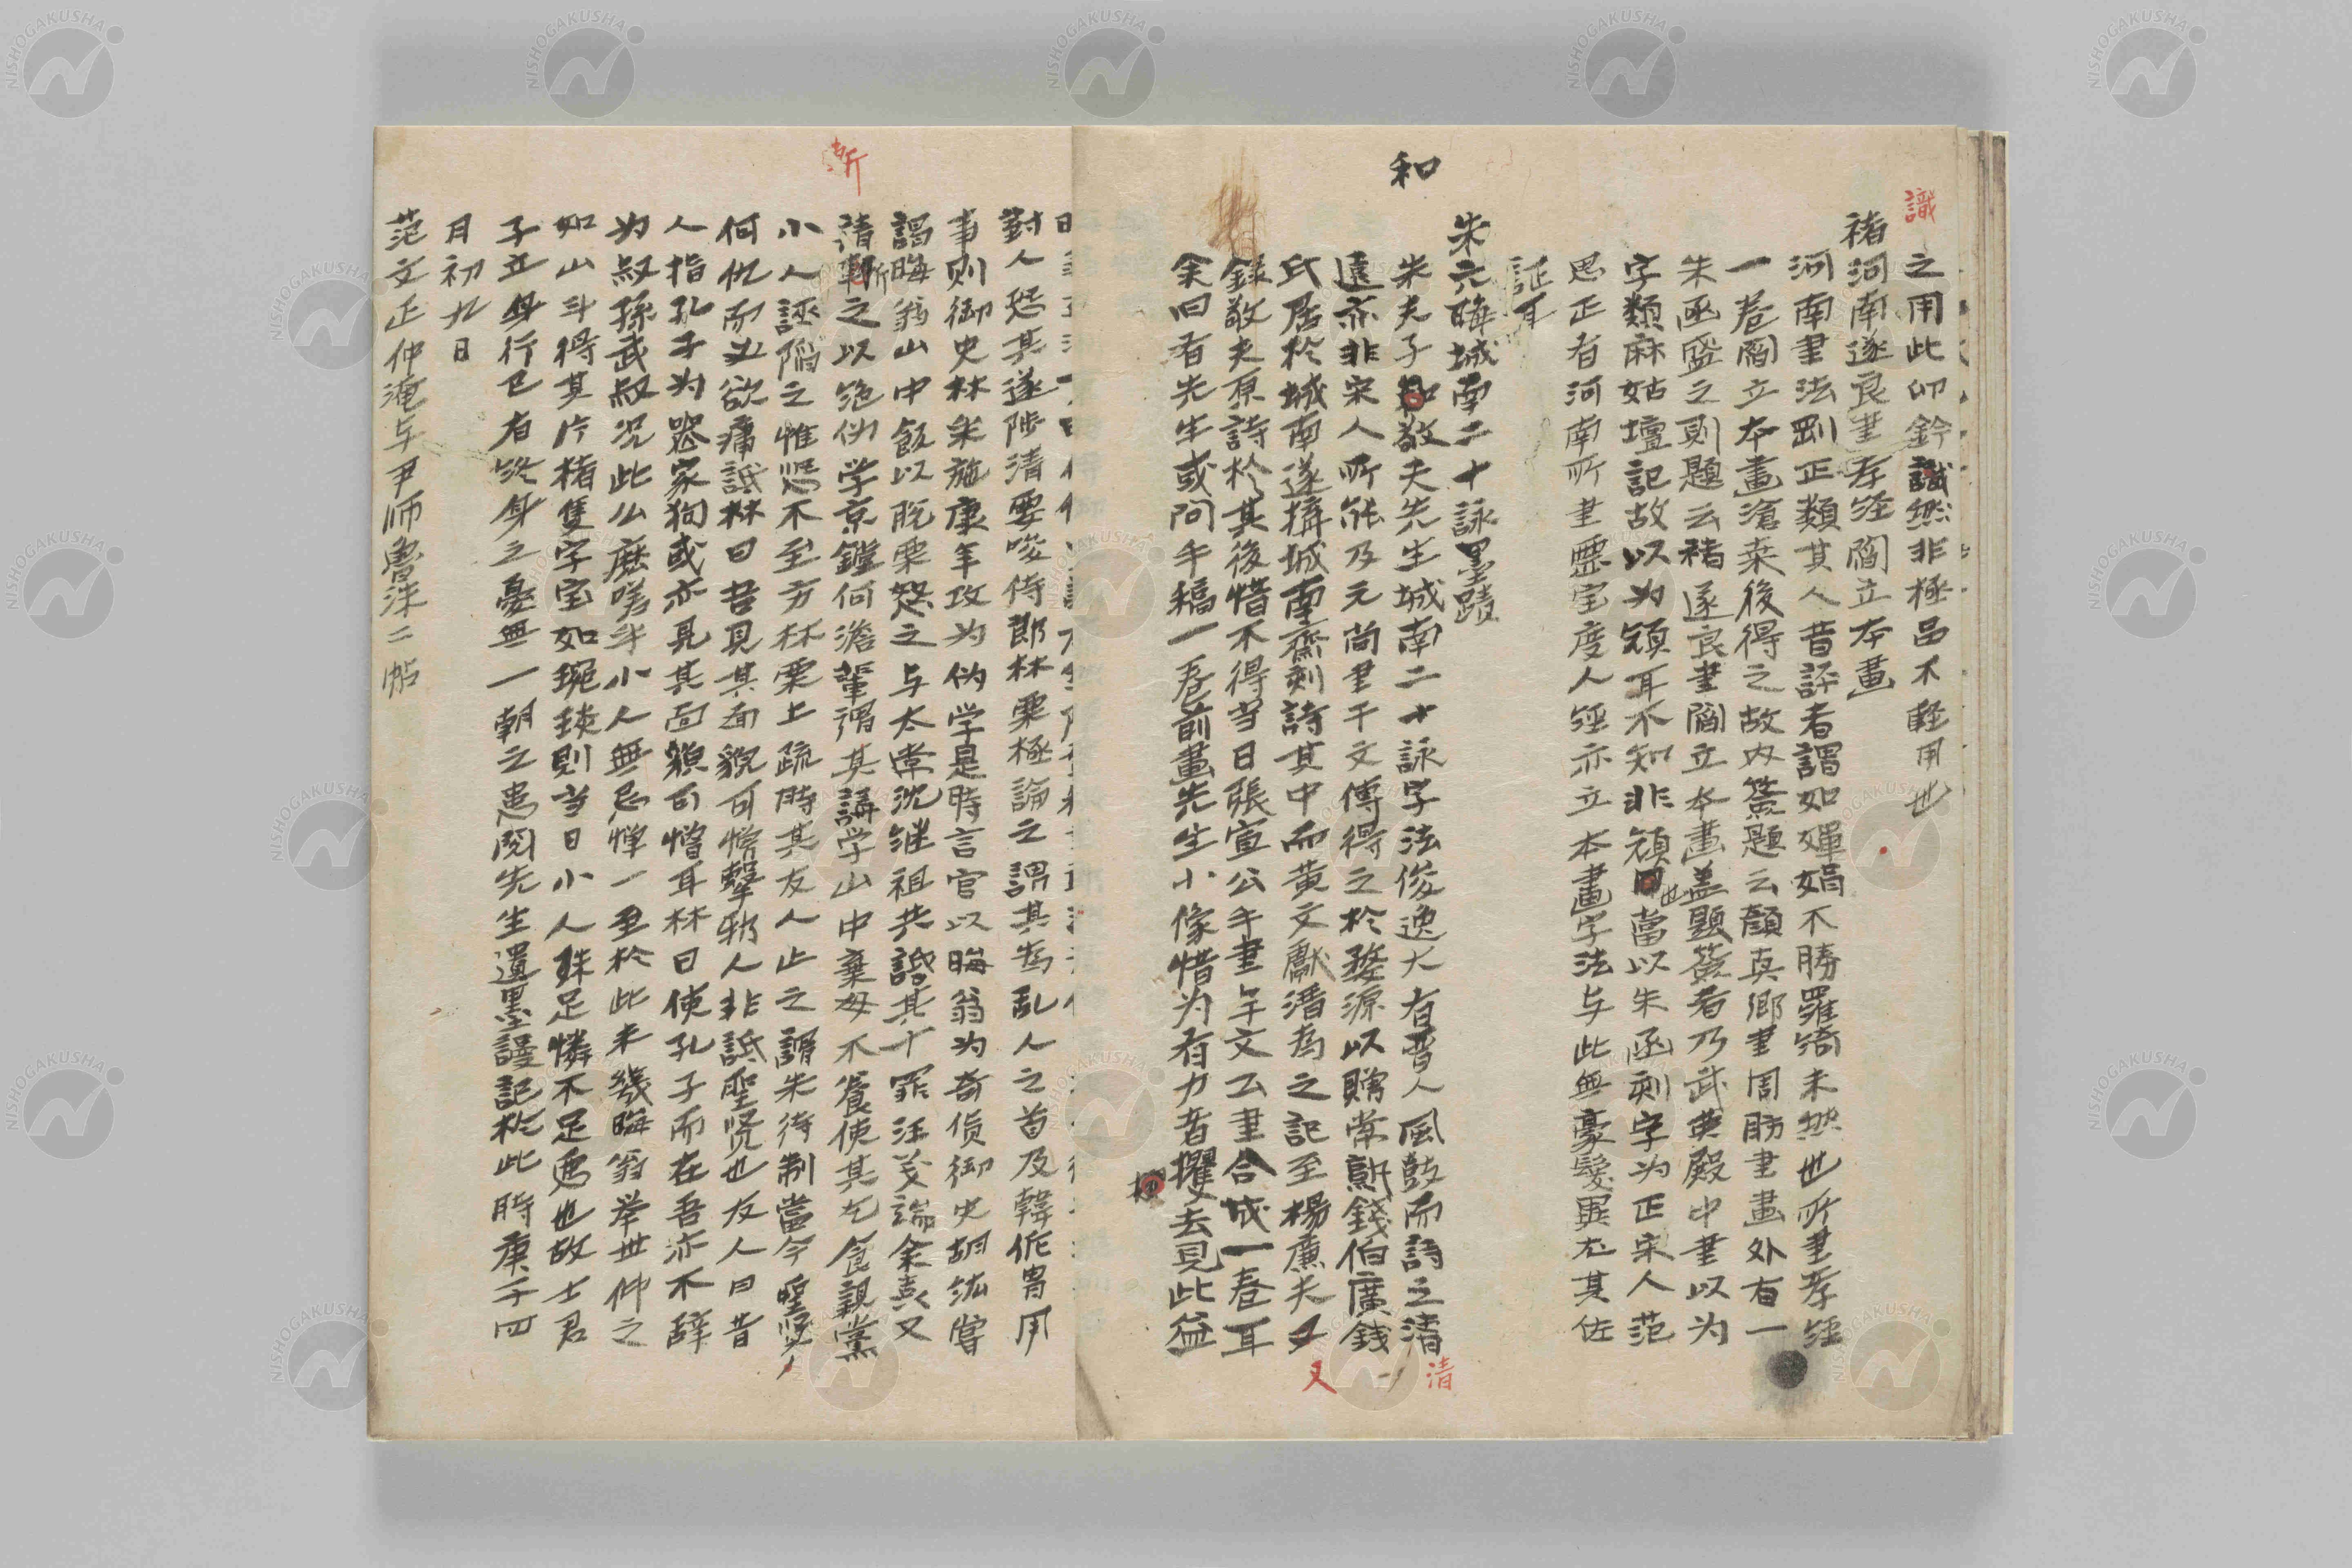 識
之用此印鈐識然非極品不輕用也
褚河南遂良書孝經閻立本畫
河南書法剛正類其人昔評者謂如嬋娟不勝羅綺未然也所書孝經
一卷閻立本畫滄桑後得之故內簽題云顏真卿書周昉畫外有一
朱函盛之則題云褚遂良書閻立本畫盖題簽者乃武英殿中書以为
字類麻姑壇記故以为頫耳不知非頫也當以朱函刻字为正宋人范
思正者河南所書靈宝度人經亦立本畫字法与此無豪髮異尤其佐
証耳
朱元晦城南二十詠墨蹟
和
朱夫子和敬夫先生城南二十詠字法俊逸大有晋人風致而詩之清
清
遠亦非宋人所能及元尚書干文傅得之於婺源以贈常熟錢伯廣錢
氏居於城南遂搆城南齋刻詩其中而黄文獻溍为之記至楊廉夫又
又
錄敬夫原詩於其後惜不得当日張宣公手書与文公書合成一卷耳
余曰者先生或问手稿一卷前畫先生小像惜为有力者攫去見此益
對人怒其遂陟清要唆侍郎林栗極論之謂其为乱人之首及韓侂冑用
事则御史林采施康年攻为伪学是時言官以晦翁为奇货御史胡紘嘗
謁晦翁山中飯以脫粟怒之与太常沈继祖共誣其十罪汪义端余嚞又
請斬之以绝伪学京鏜何澹輩谓其講学山中棄母不養使其乞食親黨
斬
小人誣陥之惟恐不至方林栗上疏時其友人止之謂朱待制當今聖賢
何仇而必欲痛詆林曰吾見其面貌可憎聲邪人非詆聖贤也友人曰昔
人指孔子为喪家狗或亦見其面貌可憎耳林曰使孔子而在吾亦不辞
为叔孫武叔况此公麽嗟乎小人無忌憚一至於此未幾晦翁举世仰之
如山斗得其片楮隻字宝如琬琰则当日小人殊足憐不足恶也故士君
子立身行己有终身之憂無一朝之患阅先生遗墨謹記於此時庚子四
月初九日
范文正仲淹与尹师魯洙二帖